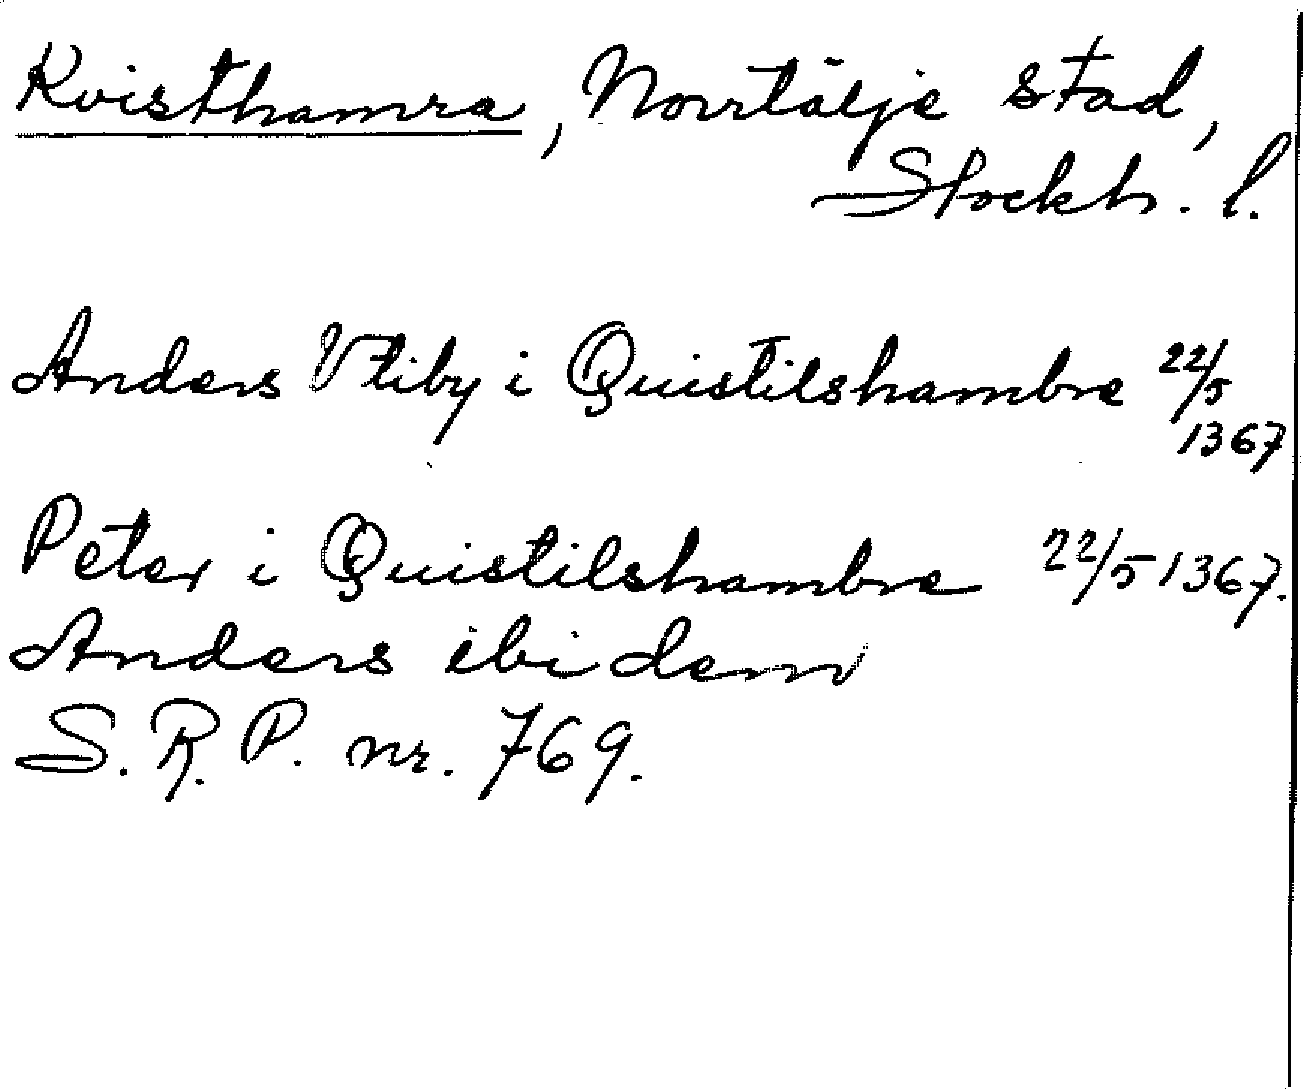 Kvisthamra, Norrtälje stad,
Stockh. l.
Anders Vtiby i Quistilshambre 22/5
1367
Peter i Quistilshambre 22/5 1367.
Anders ibidem
S. R. P. nr. 769.